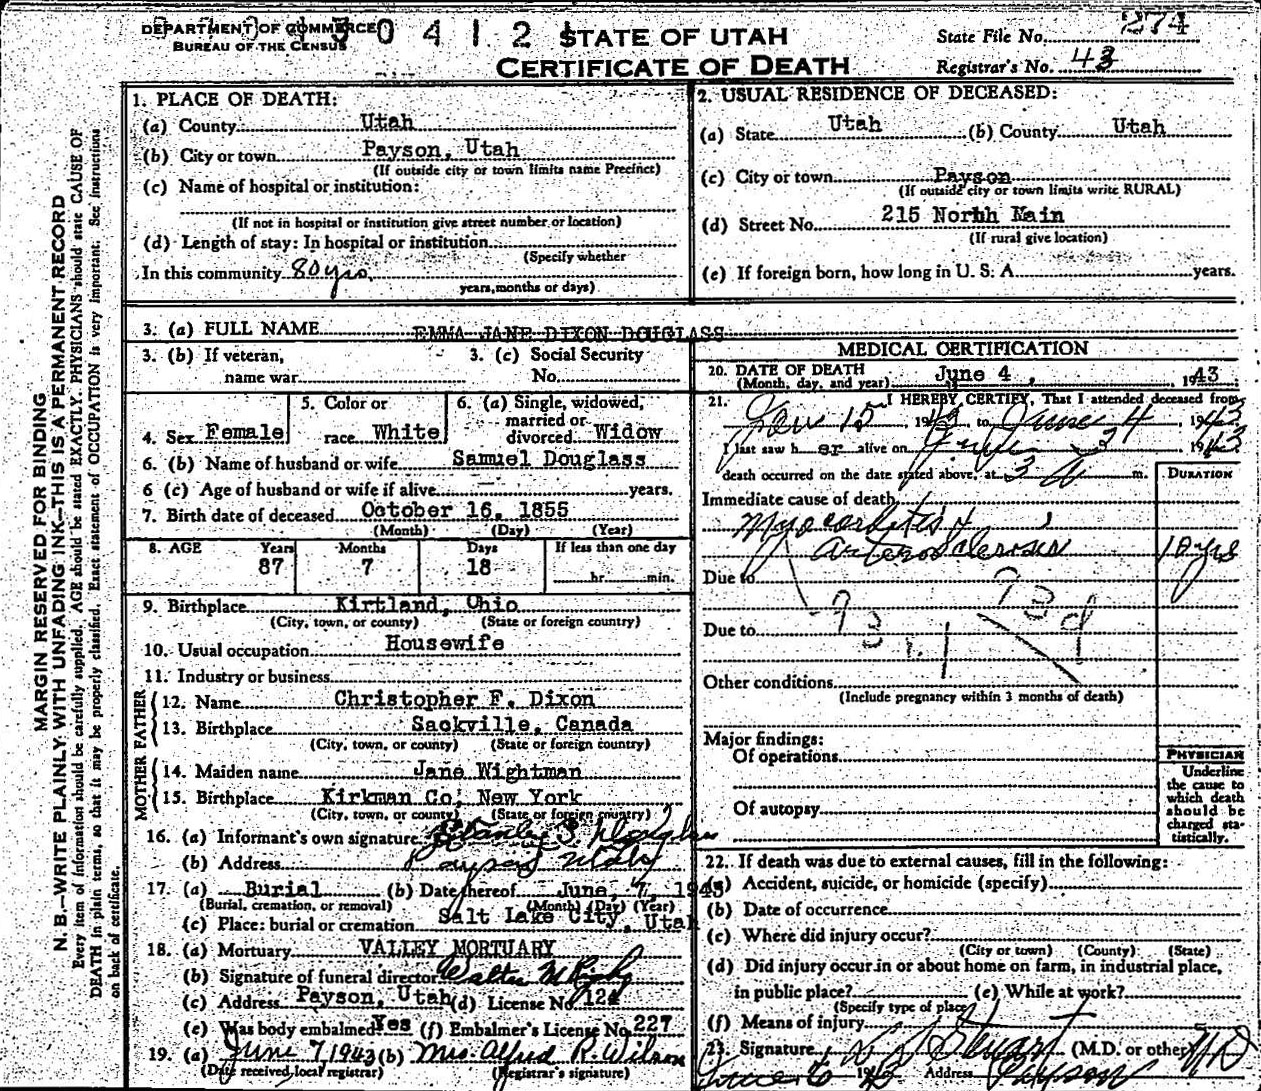 DEPARTMENT OF COMMERCE
BUREAU OF THE CENSUS
0 4 1 2
STATE OF UTAH
CERTIFICATE OF DEATH
State File No. 274
Registrar's No. 43
MARGIN RESERVED FOR BINDING
N. B.—WRITE PLAINLY, WITH UNFADING INK—THIS IS A PERMANENT RECORD
Every item of information should be carefully supplied. AGE should be stated EXACTLY. PHYSICIANS should state CAUSE OF
DEATH in plain terms, so that it may be properly classified. Exact statement of OCCUPATION is very important. See instructions
on back of certificate.
1. PLACE OF DEATH:
(a) County Utah
(b) City or town Payson, Utah
(If outside city or town limits name Precinct)
(c) Name of hospital or institution:
(If not in hospital or institution give street number or location)
(d) Length of stay: In hospital or institution
(Specify whether
In this community 80 yrs.
years, months or days)
2. USUAL RESIDENCE OF DECEASED:
(a) State Utah (b) County Utah
(c) City or town Payson
(If outside city or town limits write RURAL)
(d) Street No. 215 North Main
(If rural give location)
(e) If foreign born, how long in U. S. A. years.
3. (a) FULL NAME EMMA JANE DIXON DOUGLASS
3. (b) If veteran,
name war
3. (c) Social Security
No.
4. Sex Female
5. Color or
race White
6. (a) Single, widowed,
married or
divorced Widow
6. (b) Name of husband or wife Samuel Douglass
6 (c) Age of husband or wife if alive years.
7. Birth date of deceased October 16, 1855
(Month) (Day) (Year)
8. AGE Years Months Days If less than one day
87 7 18 hr. min.
9. Birthplace Kirtland, Ohio
(City, town, or county) (State or foreign country)
10. Usual occupation Housewife
11. Industry or business
FATHER
12. Name Christopher F. Dixon
13. Birthplace Sackville, Canada
(City, town, or county) (State or foreign country)
MOTHER
14. Maiden name Jane Wightman
15. Birthplace Kirkman Co, New York
(City, town, or county) (State or foreign country)
16. (a) Informant's own signature Stanley S. Douglass
(b) Address Payson, Utah
17. (a) Burial (b) Date thereof June, 7, 1943
(Burial, cremation, or removal) (Month) (Day) (Year)
(c) Place: burial or cremation Salt Lake City, Utah
18. (a) Mortuary VALLEY MORTUARY
(b) Signature of funeral director Walter
(c) Address Payson, Utah (d) License No. 124
(e) Was body embalmed Yes (f) Embalmer's License No. 227
19. (a) June 7, 1943 (b) Mrs. Alfred R. Wilson
(Date received local registrar) (Registrar's signature)
MEDICAL CERTIFICATION
20. DATE OF DEATH
(Month, day, and year) June 4, 1943
21. I HEREBY CERTIFY, That I attended deceased from
15, 19 to June 4, 1943
I last saw her alive on 3 1943
death occurred on the date stated above, at 3 m.
DURATION
Immediate cause of death
Myocarditis &
Arterosclerosis 10 yrs
Due to
93 d
Due to
Other conditions
(Include pregnancy within 3 months of death)
Major findings:
Of operations
Of autopsy
PHYSICIAN
Underline
the cause to
which death
should be
charged sta-
tistically.
22. If death was due to external causes, fill in the following:
(a) Accident, suicide, or homicide (specify)
(b) Date of occurrence
(c) Where did injury occur?
(City or town) (County) (State)
(d) Did injury occur in or about home on farm, in industrial place,
in public place? (e) While at work?
(Specify type of place)
(f) Means of injury
23. Signature L D Stewart (M.D. or other) MD
June 6 1943 Address Payson